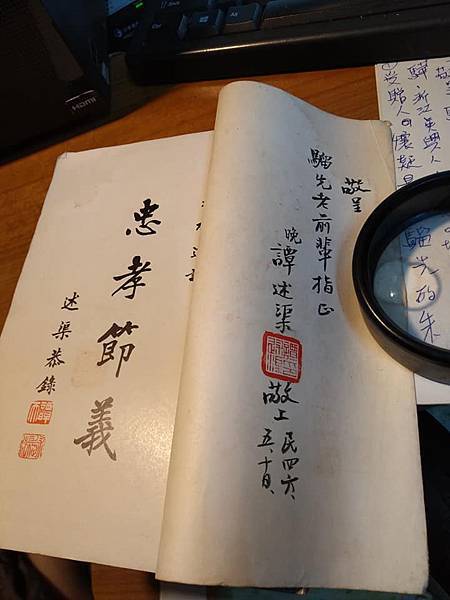 敬呈
騮先老前輩指正
晚
譚述渠
敬上
民四六、
五、十日、
忠孝節義
述渠恭錄
浙江吳興人
受贈人可懷疑是
騮先的朱
HDMI